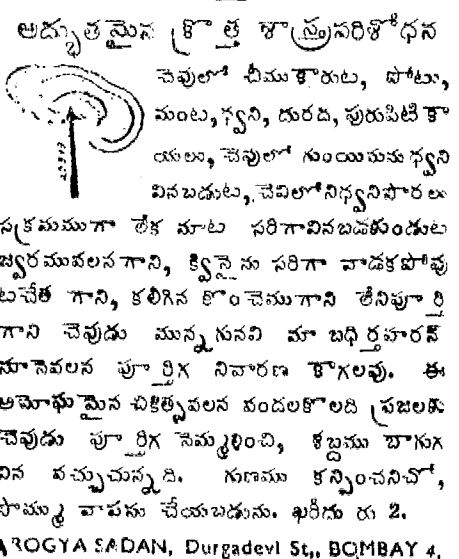 అద్భుతమైన క్రొత్త శాస్త్రపరిశోధన
చెవులో చీముకారుట, పోటు,
మంట, ధ్వని, దురద, పురుపిటికా
యలు, చెవులో గుంయిమను ధ్వని
వినబడుట, చెవిలోనిధ్వనిపొరలు
సక్రమముగా లేక మాట సరిగావినబడకుండుట
జ్వరమువలన గాని, క్వినైను సరిగా వాడకపోవు
టచేత గాని, కలిగిన కొంచెముగాని లేనిపూర్తి
గాని చెవుడు మున్నగునవి మా బధిర్తహరన్
నూనెవలన పూర్తిగ నివారణ కాగలవు. ఈ
అమోఘమైన చికిత్సవలన వందలకొలది ప్రజలకు
చెవుడు పూర్తిగ నెమ్మళించి, శబ్దము బాగుగ
విన వచ్చుచున్నది. గుణము కన్పించనిచో,
సొమ్ము వాపసు చేయబడును. ఖరీదు రు 2.
AROGYA SADAN, Durgadevi St,, BOMBAY 4.